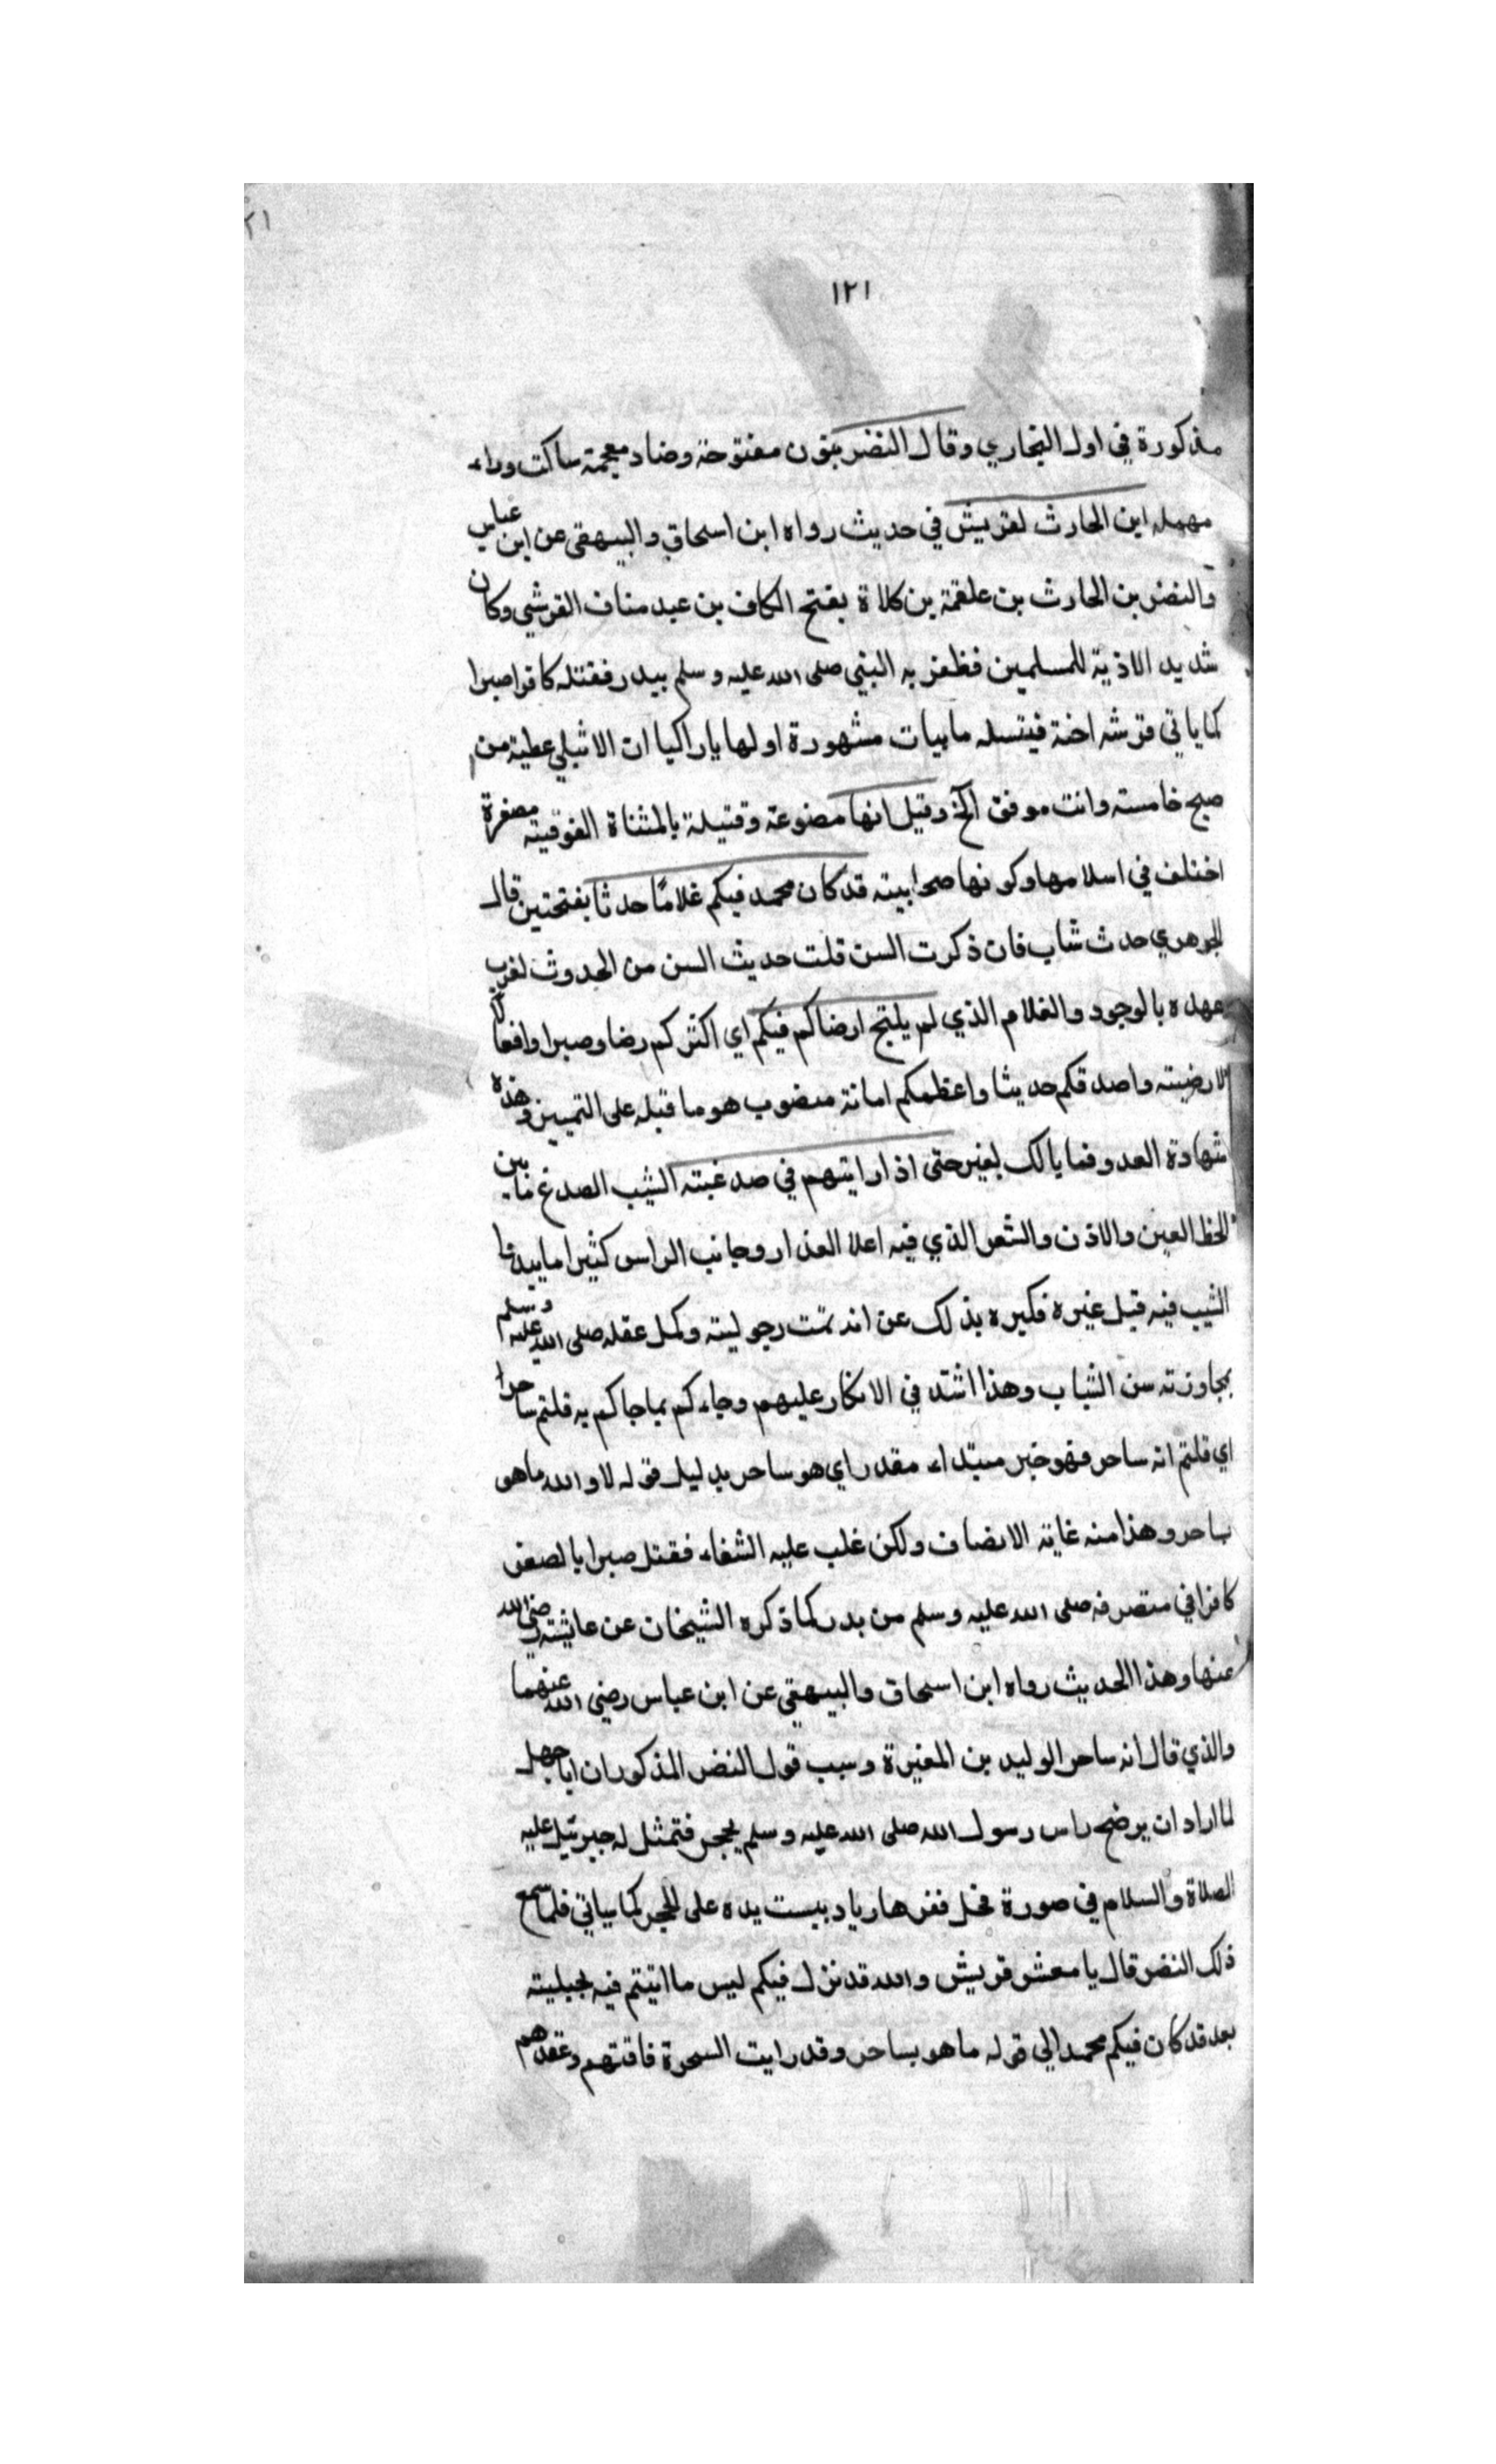 ١٢١
مذكورة في اول البخاري وقال النضر بنون مفتوحة وضاد معجمة ساكنت وراء
مهمله ابن الحارث لقريش في حديث رواه ابن اسحاق والبيهقي عن ابن عباس
والنضر بن الحارث بن علقمة بن كلاة بفتح الكاف بن عبد مناف القرشي وكان
شديد الاذية للمسلمين فظفر به النبي صلى الله عليه وسلم ببدر فقتله كافرا صبرا
كما ياتي فرثته اخته قتيله بابيات مشهورة اولها ياراكبا ان الاثيلي عطية من
صبح خامسته وانت موفق الخ وقيل انها مصنوعة وقتيلة بالمثناة الفوقيته مصغرة
اختلف في اسلامها وكونها صحابيته قد كان محمد فيكم غلامًا حدثا بفتحتين قال
الجوهري حدث شاب فان ذكرت السن قلت حديث السن من الحدوث لقرب
عهده بالوجود والغلام الذي لم يلتح ارضاكم فيكم اي اكثركم رضا وصبرا وافعالا
لارضيته واصدقكم حديثا واعظمكم امانة منصوب هو ما قبله على التمييز وهذه
شهادة العدو فما يالك بغيره حتى اذا رايتهم في صدغيته الشيب الصدغ مابين
لحظ العين والاذن والشعر الذي فيه اعلا العذار وجانب الراس كثيرا ما يبدا
الشيب فيه قبل غيره فكبره بذلك عن انه تمت رجوليته وكمل عقله صلى الله عليه وسلم
بمجاوزته سن الشباب وهذا اشد في الانكار عليهم وجاءكم بماجاكم به قلتم ساحرا
اي قلتم انه ساحر فهو خبر مبتداء مقدر اي هو ساحر بدليل قوله لا والله ماهو
بساحر وهذا منه غاية الانصاف ولكن غلب عليه الشقاء فقتل صبرا بالصفر
كافرا في منصرفه صلى الله عليه وسلم من بدر كما ذكره الشيخان عن عايشة رضي الله
عنها وهذا الحديث رواه ابن اسحاق والبيهقي عن ابن عباس رضي الله عنهما
والذي قال انه ساحر الوليد بن المغيرة وسبب قول النضر المذكور ان اباجهل
لما اراد ان يرضخ راس رسول الله صلى الله عليه وسلم بحجر فتمثل له جبرئيل عليه
الصلاة والسلام في صورة فحل ففر هاربا ويبست يده على الحجر كما سياتي فلما سمع
ذلك النضر قال يا معشر قريش والله قد نزل فيكم ليس ما اتيتم فيه بحيليته
بعد قد كان فيكم محمد الي قوله ما هو بساحر وقد رايت السحرة فاقتهم وعقدهم